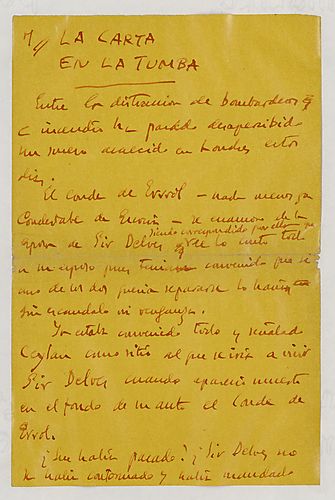 LA CARTA
EN LA TUMBA
Entre la distracción de bombardeos
e incendios ha pasado desapercibido
un suceso acaecido en Londres estos
días.
El conde de Errol – nada menos que
Condestable de Escocia – se enamoró de la
esposa de Sir Delves siendo correspondido por ella que
se lo contó todo
a su esposo pues tenían convenido que si
uno de los dos quería separarse lo harían
sin escándalo ni venganza.
Ya estaba convenido todo y señalado
Ceylan como sitio al que se iría a vivir
Sir Delves cuando apareció muerto
en el fondo de un auto el Conde de
Errol.
¿Qué había pasado? ¿Sir Delves no
se había conformado y había mandado